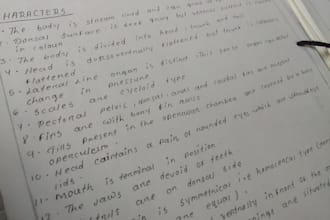 HARACTERS
The body is stream lined and can grow
Dorsal surface is dark gray but ventral surface is
in colour
3. The body is divided into head, trunk and tail
4. Head is dorsoventrally flattened but trunk is laterally
flattened.
5. Lateral line organ is distinct. This sense organ
change in pressure
6. Scales are cycloid type
7. Pectoral, pelvic, dorsal, anal and caudal fins are present
8. Fins are with bony fin rays
9. Gills present in the opercular chamber and covered by a bony
operculum.
10. Head contains a pair of rounded eyes which are without
lids.
11. Mouth is terminal in position
12. The jaws are devoid of teeth
are on dorsal side
fin is symmetrical i.e. homocercal type
are equal).
ventrally infront of the